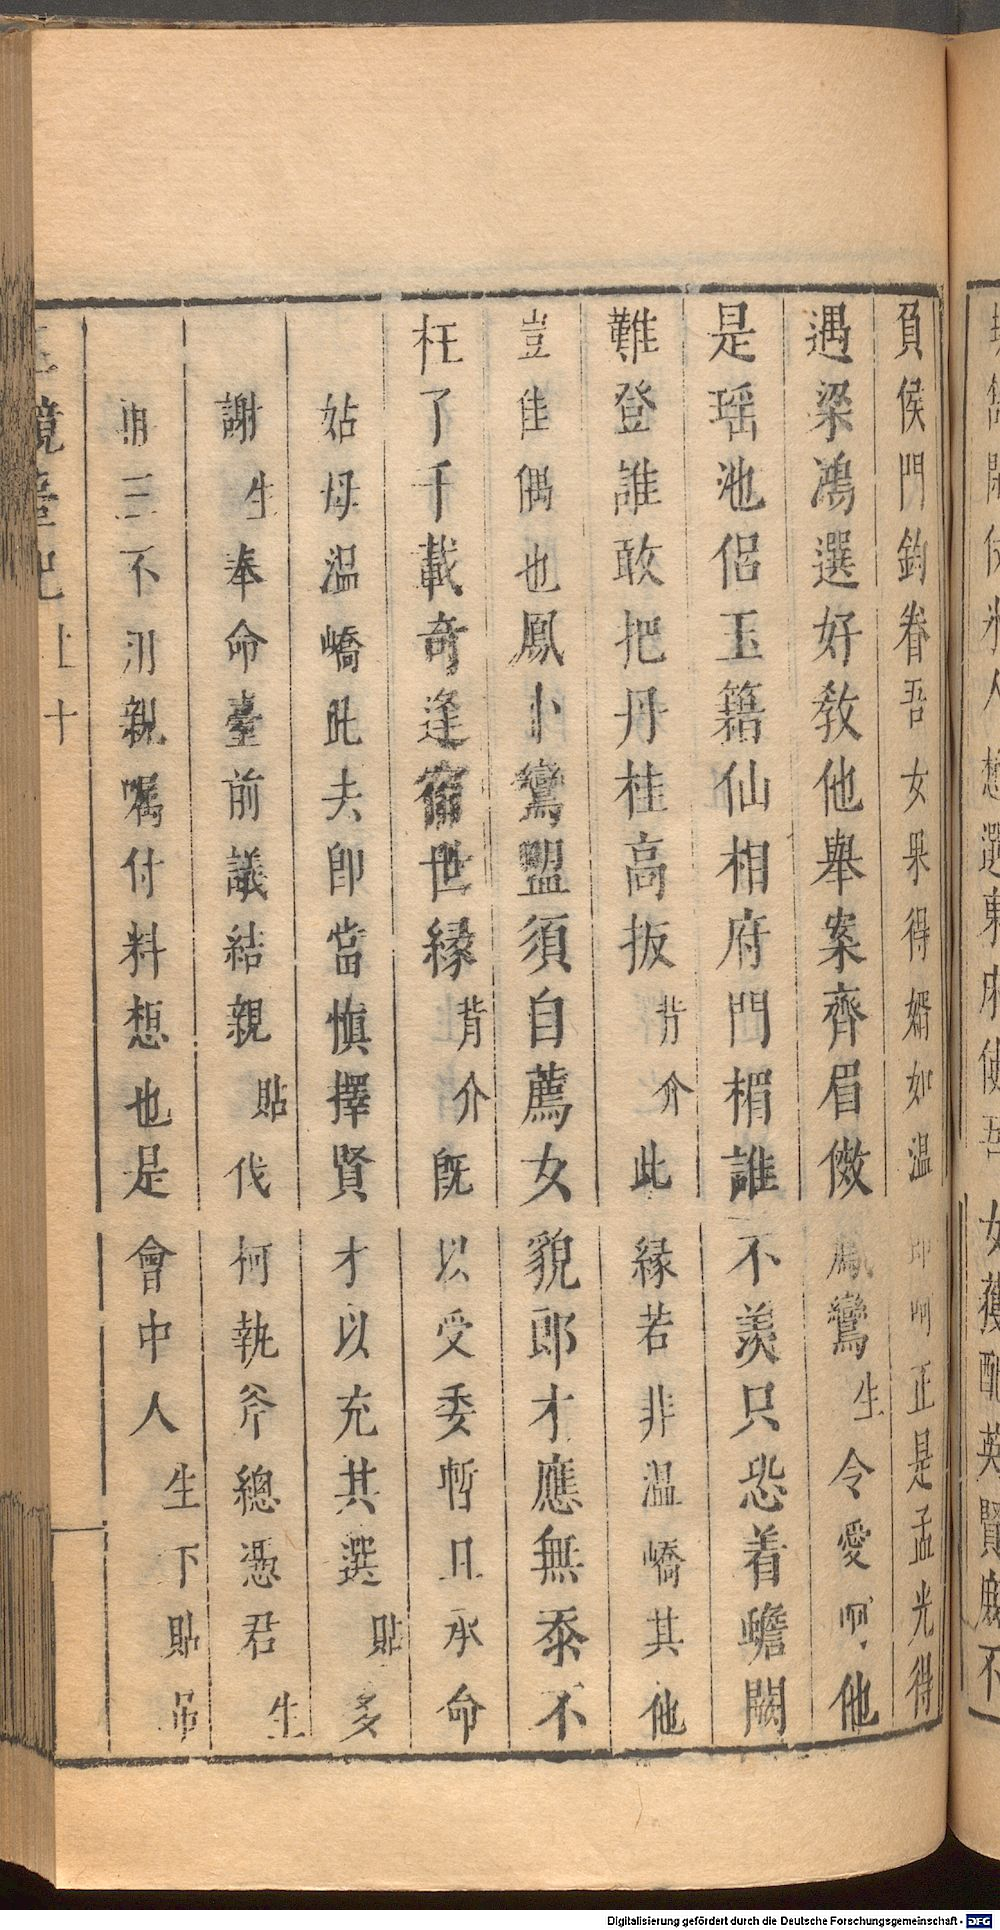 負侯門鈞眷吾女果得婿如温即啊正是孟光得
遇梁鴻選好教他舉案齊眉傚鳳鸞生令愛啊他
是瑶池侣玉籍仙相府門楣誰不羨只恐着蟾闕
難登誰敢把丹桂高扳背介此緣若非温嶠其他
豈佳偶也鳳卜鸞盟須自薦女貌郎才應無忝不
枉了千載奇逢宿世緣背介既以受委暫且承命
姑母温嶠此去即當慎擇賢才以充其選貼多
謝生奉命臺前議結親貼伐柯執斧總憑君生
再三不用親嘱付料想也是會中人生下貼吊
玉鏡臺記上十
Digitalisierung gefördert durch die Deutsche Forschungsgemeinschaft - DFG